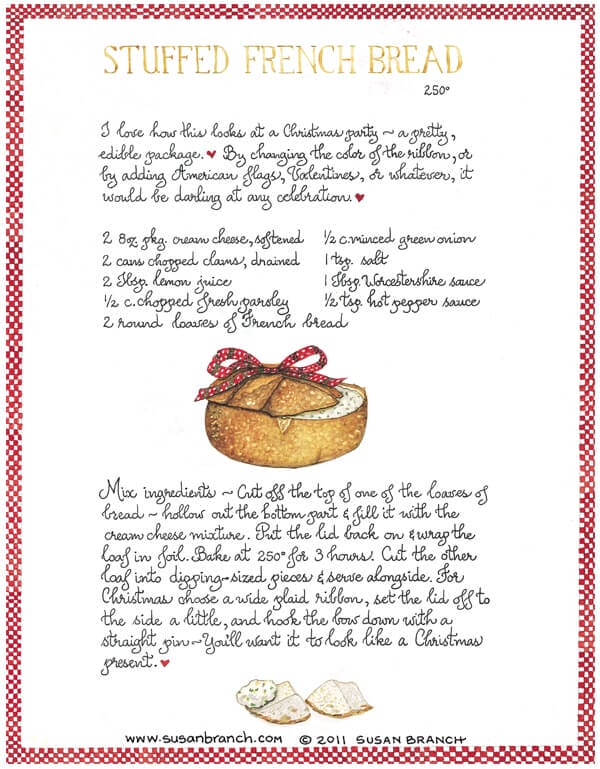 STUFFED FRENCH BREAD
250°
I love how this looks at a Christmas party ~ a pretty,
edible package. ♥ By changing the color of the ribbon, or
by adding American flags, Valentines, or whatever, it
would be darling at any celebration. ♥
2 8oz. pkg. cream cheese, softened
2 cans chopped clams, drained
2 Tbsp. lemon juice
½ c. chopped fresh parsley
2 round loaves of French bread
½ c. minced green onion
1 tsp. salt
1 Tbsp. Worcestershire sauce
½ tsp. hot pepper sauce
Mix ingredients ~ Cut off the top of one of the loaves of
bread ~ hollow out the bottom part & fill it with the
cream cheese mixture. Put the lid back on & wrap the
loaf in foil. Bake at 250° for 3 hours! Cut the other
loaf into dipping-sized pieces & serve alongside. For
Christmas choose a wide plaid ribbon, set the lid off to
the side a little, and hook the bow down with a
straight pin ~ You'll want it to look like a Christmas
present. ♥
www.susanbranch.com © 2011 SUSAN BRANCH